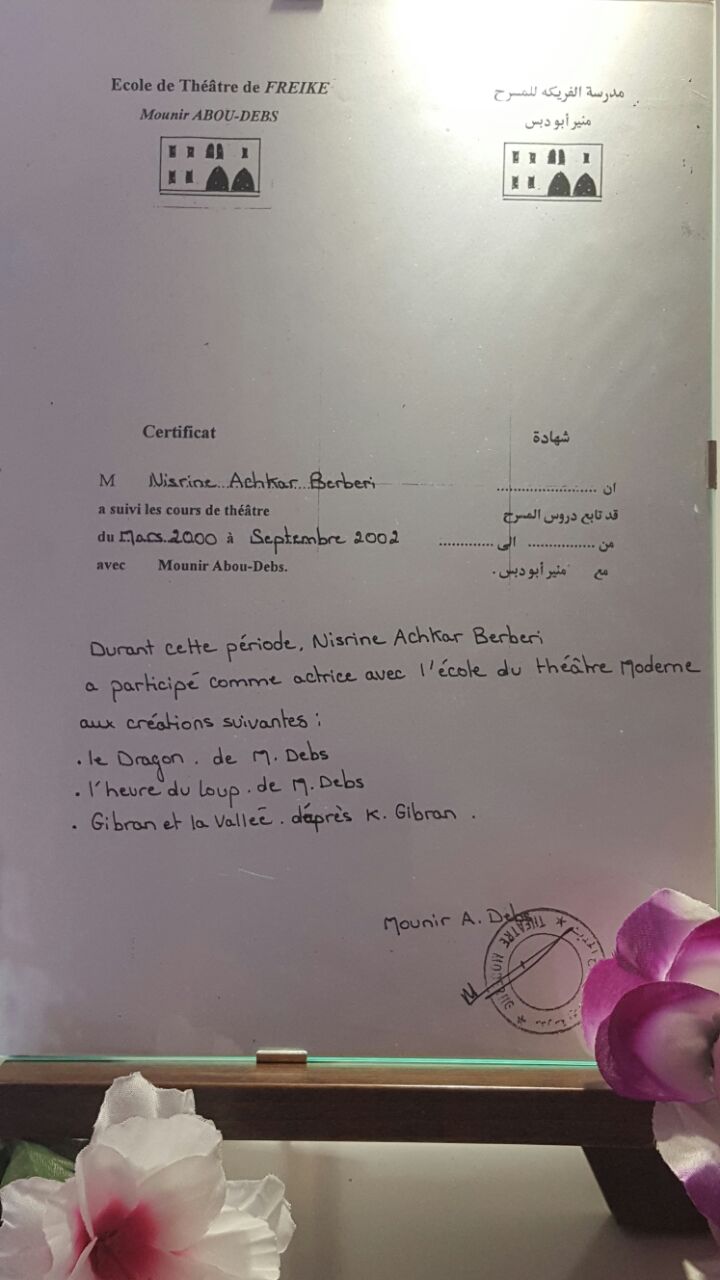 Ecole de Théâtre de FREIKE
Mounir ABOU-DEBS
مدرسة الفريكه للمسرح
منير أبو دبس
Certificat
M Nisrine Achkar Berberi
a suivi les cours de théâtre
du Mars 2000 à Septembre 2002
avec Mounir Abou-Debs.
شهادة
ان ......................
قد تابع دروس المسرح
من ............... الى ............
مع منير أبو دبس .
Durant cette période, Nisrine Achkar Berberi
a participé comme actrice avec l'école du théâtre Moderne
aux créations suivantes :
. le Dragon . de M. Debs
. l'heure du loup . de M. Debs
. Gibran et la Valleé . d'après K. Gibran .
Mounir A. Debs
THEATRE MODERNE